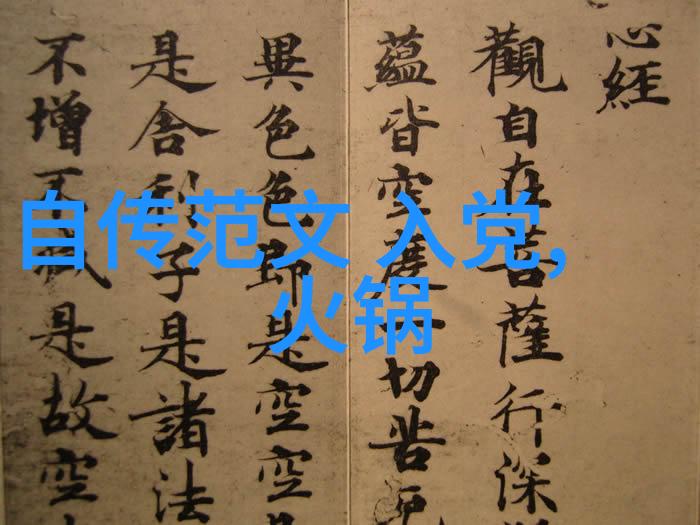 心經
觀自在菩薩行深
蘊皆空度一切苦厄
異色色即是空空是
是舍利子是諸法
不增不減是故空
自传范文 入党,
火锅